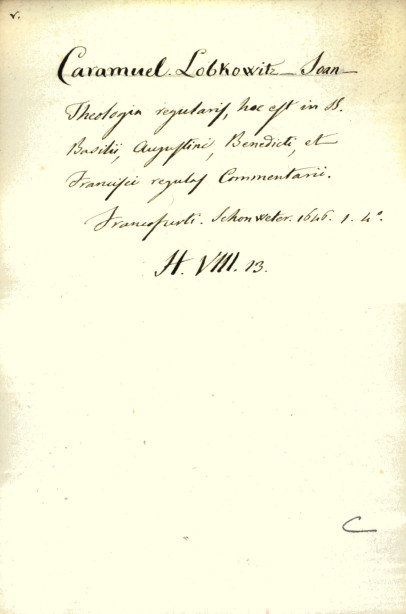 v.
Caramuel Lobkowitz Joan
Theologia regularis, hoc est in SS.
Basilii, Augustini, Benedicti, et
Francisci regulas Commentarii.
Francofurti. Schonweter. 1646. 1. 4º.
H. VIII. 13.
C